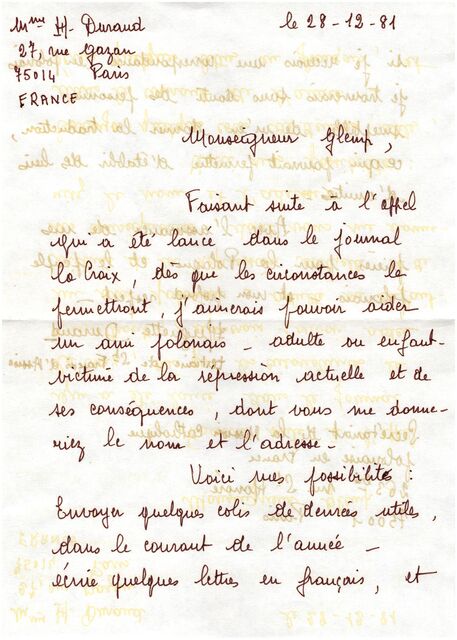 Mme H. Durand
le 28-12-81
27, rue Gazan
75014 Paris
FRANCE
Monseigneur Glemp,
Faisant suite à l'appel
qui a été lancé dans le journal
la Croix, dès que les circonstances le
permettront, j'aimerais pouvoir aider
un ami polonais - adulte ou enfant -
victime de la répression actuelle et de
ses conséquences, dont vous me donne-
riez le nom et l'adresse -
Voici mes possibilités :
Envoyer quelques colis de denrées utiles,
dans le courant de l'année -
écrire quelques lettres en français, et